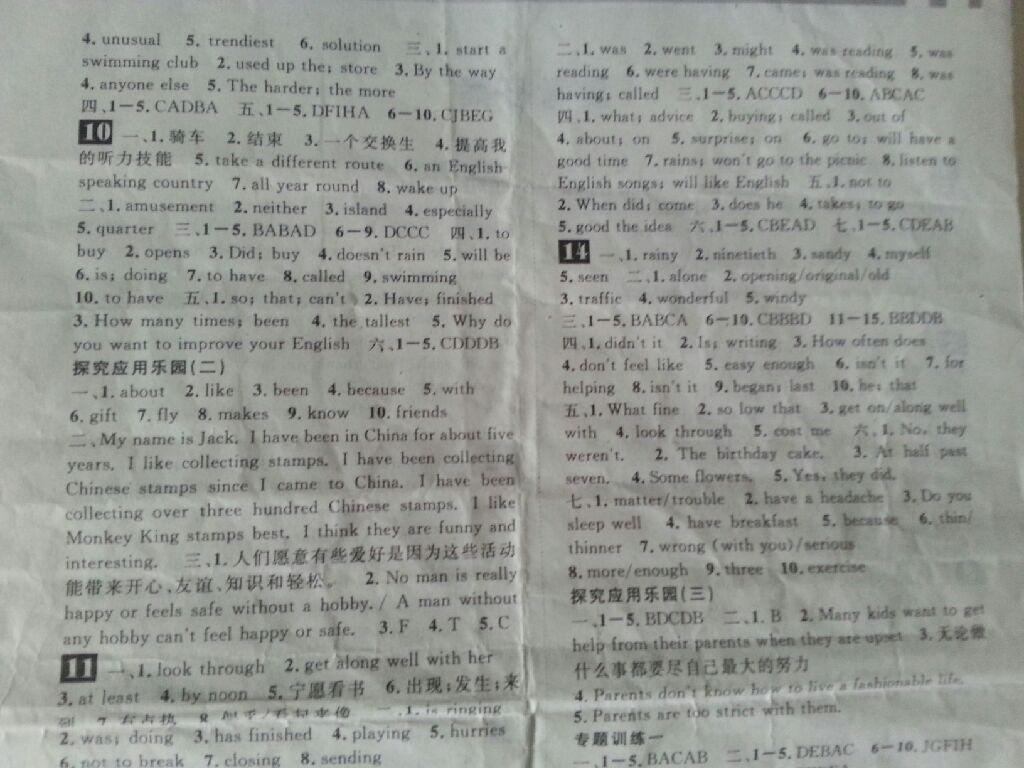 4. unusual 5. trendiest 6. solution 三、1. start a
swimming club 2. used up the; store 3. By the way
4. anyone else 5. The harder; the more
四、1—5. CADBA 五、1—5. DFIHA 6—10. CJBEG
10 一、1. 骑车 2. 结束 3. 一个交换生 4. 提高我
的听力技能 5. take a different route 6. an English-
speaking country 7. all year round 8. wake up
二、1. amusement 2. neither 3. island 4. especially
5. quarter 三、1—5. BABAD 6—9. DCCC 四、1. to
buy 2. opens 3. Did; buy 4. doesn't rain 5. will be
6. is; doing 7. to have 8. called 9. swimming
10. to have 五、1. so; that; can't 2. Have; finished
3. How many times; been 4. the tallest 5. Why do
you want to improve your English 六、1—5. CDDDB
探究应用乐园(二)
一、1. about 2. like 3. been 4. because 5. with
6. gift 7. fly 8. makes 9. know 10. friends
二、My name is Jack. I have been in China for about five
years. I like collecting stamps. I have been collecting
Chinese stamps since I came to China. I have been
collecting over three hundred Chinese stamps. I like
Monkey King stamps best. I think they are funny and
interesting. 三、1. 人们愿意有些爱好是因为这些活动
能带来开心、友谊、知识和轻松。 2. No man is really
happy or feels safe without a hobby. / A man without
any hobby can't feel happy or safe. 3. F 4. T 5. C
11 一、1. look through 2. get along well with her
3. at least 4. by noon 5. 宁愿看书 6. 出现;发生;来
到 7. 有点热 8. 似乎/看起来像 二、1. is ringing
2. was; doing 3. has finished 4. playing 5. hurries
6. not to break 7. closing 8. sending
二、1. was 2. went 3. might 4. was reading 5. was
reading 6. were having 7. came; was reading 8. was
having; called 三、1—5. ACCCD 6—10. ABCAC
四、1. what; advice 2. buying; called 3. out of
4. about; on 5. surprise; on 6. go to; will have a
good time 7. rains; won't go to the picnic 8. listen to
English songs; will like English 五、1. not to
2. When did; come 3. does he 4. takes; to go
5. good the idea 六、1—5. CBEAD 七、1—5. CDEAB
14 一、1. rainy 2. ninetieth 3. sandy 4. myself
5. seen 二、1. alone 2. opening/original/old
3. traffic 4. wonderful 5. windy
三、1—5. BABCA 6—10. CBBBD 11—15. BBDDB
四、1. didn't it 2. Is; writing 3. How often does
4. don't feel like 5. easy enough 6. isn't it 7. for
helping 8. isn't it 9. began; last 10. he; that
五、1. What fine 2. so low that 3. get on/along well
with 4. look through 5. cost me 六、1. No, they
weren't. 2. The birthday cake. 3. At half past
seven. 4. Some flowers. 5. Yes, they did.
七、1. matter/trouble 2. have a headache 3. Do you
sleep well 4. have breakfast 5. because 6. thin/
thinner 7. wrong (with you)/serious
8. more/enough 9. three 10. exercise
探究应用乐园(三)
一、1—5. BDCDB 二、1. B 2. Many kids want to get
help from their parents when they are upset 3. 无论做
什么事都要尽自己最大的努力
4. Parents don't know how to live a fashionable life.
5. Parents are too strict with them.
专题训练一
一、1—5. BACAB 二、1—5. DEBAC 6—10. JGFIH